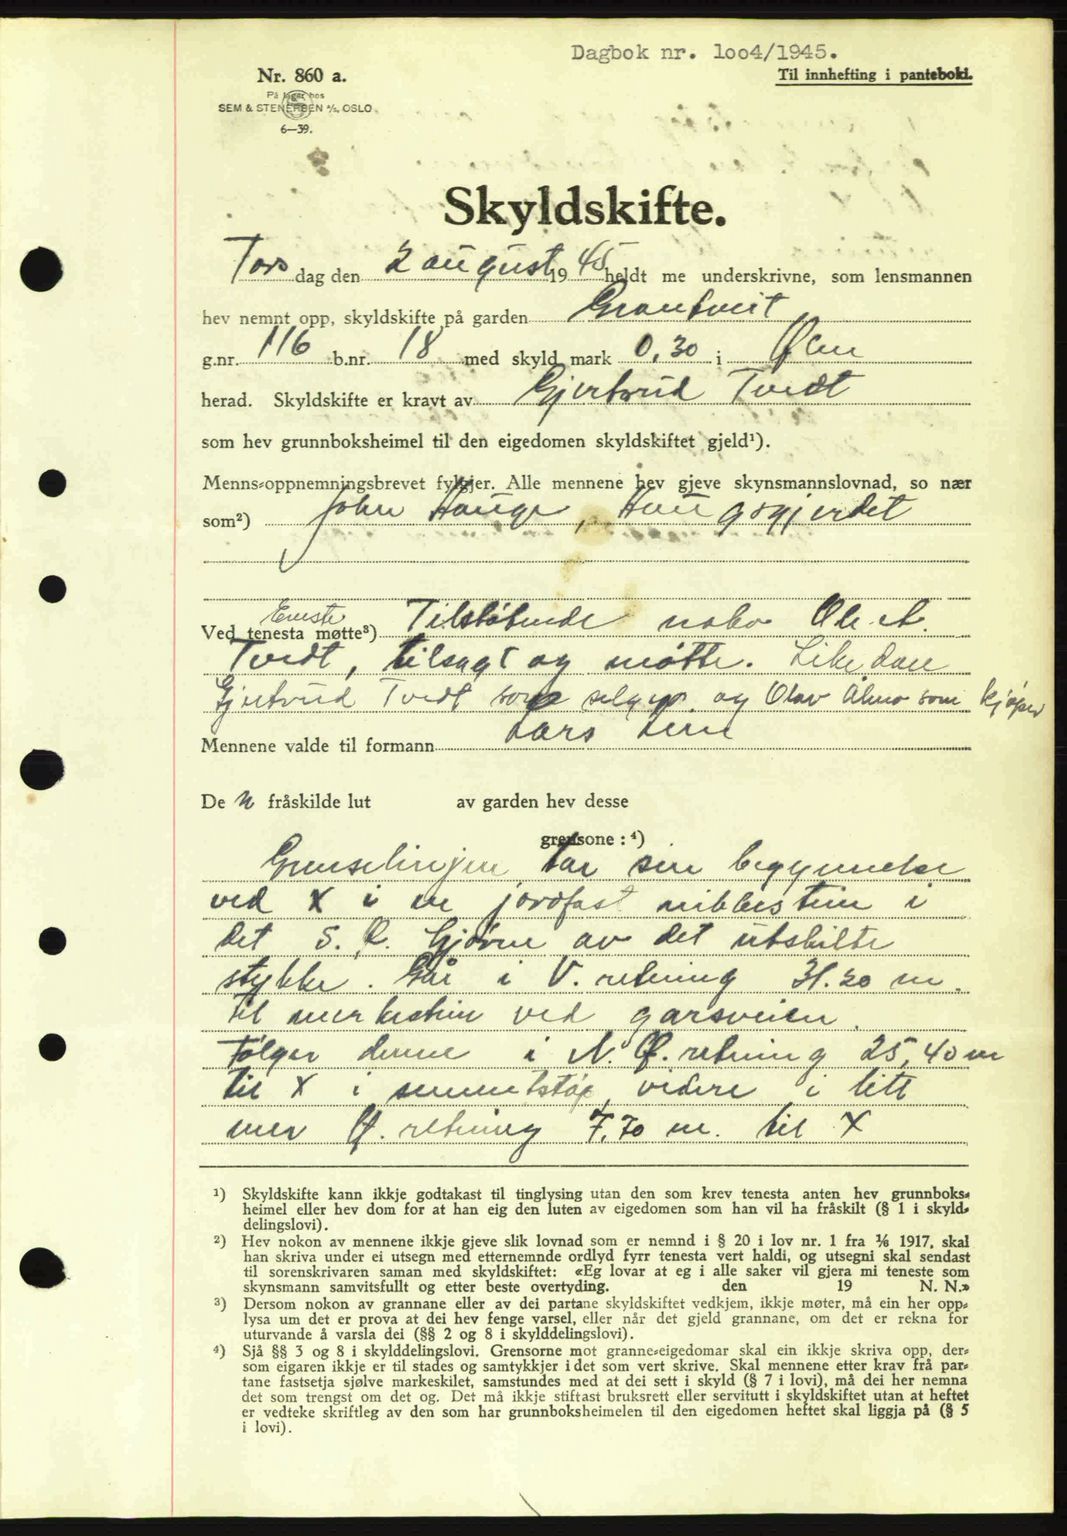 Dagbok nr. 1oo4/1945.
Nr. 860 a.
Til innhefting i panteboki.
På lager hos
SEM & STENERSEN A/S, OSLO
6—39.
Skyldskifte.
Torsdag den 2 august 1945 heldt me underskrivne, som lensmannen
hev nemnt opp, skyldskifte på garden Grantveit
g.nr. 116 b.nr. 18 med skyld mark 0,30 i Ølen
herad. Skyldskifte er kravt av Gjertrud Tvedt
som hev grunnboksheimel til den eigedomen skyldskiftet gjeld¹).
Menns-oppnemningsbrevet fylgjer. Alle mennene hev gjeve skynsmannslovnad, so nær
som²) John Hauge, Haugsgjerdet
Eneste
Ved tenesta møtte³) Tilstøtende nabo Ole A.
Tvedt, tilsagt og møtte. Likedan
Gjertrud Tvedt som selger og Olav Almo som kjøper
Mennene valde til formann Lars Lunn
De n fråskilde lut av garden hev desse
grensone : ⁴)
Grenselinjen tar sin begynnelse
ved X i en jordfast nibbestein i
det S. Ø. hjørne av det utskilte
stykke. Går i V. retning 31.20 m.
til merkestein ved garsveien.
Følger denne i N. Ø. retning 25,40 m
til X i sementstøp, videre i litt
mer Ø. retning 7,70 m. til X
¹) Skyldskifte kann ikkje godtakast til tinglysing utan den som krev tenesta anten hev grunnboks-
heimel eller hev dom for at han eig den luten av eigedomen som han vil ha fråskilt (§ 1 i skyld-
delingslovi).
²) Hev nokon av mennene ikkje gjeve slik lovnad som er nemnd i § 20 i lov nr. 1 fra 1/6 1917, skal
han skriva under ei utsegn med etternemnde ordlyd fyrr tenesta vert haldi, og utsegni skal sendast
til sorenskrivaren saman med skyldskiftet: «Eg lovar at eg i alle saker vil gjera mi teneste som
skynsmann samvitsfullt og etter beste overtyding. den 19 N. N.»
³) Dersom nokon av grannane eller av dei partane skyldskiftet vedkjem, ikkje møter, må ein her opp-
lysa um det er prova at dei hev fenge varsel, eller når det gjeld grannane, om det er rekna for
uturvande å varsla dei (§§ 2 og 8 i skylddelingslovi).
⁴) Sjå §§ 3 og 8 i skylddelingslovi. Grensorne mot granne-eigedomar skal ein ikkje skriva opp, der-
som eigaren ikkje er til stades og samtykkjer i det som vert skrive. Skal mennene etter krav frå par-
tane fastsetja sjølve markeskilet, samstundes med at dei sett i skyld (§ 7 i lovi), må dei her nemna
det som trengst om det og. Det må ikkje stiftast bruksrett eller servitutt i skyldskiftet utan at heftet
er vedteke skriftleg av den som har grunnboksheimelen til den eigedomen heftet skal liggja på (§ 5
i lovi).